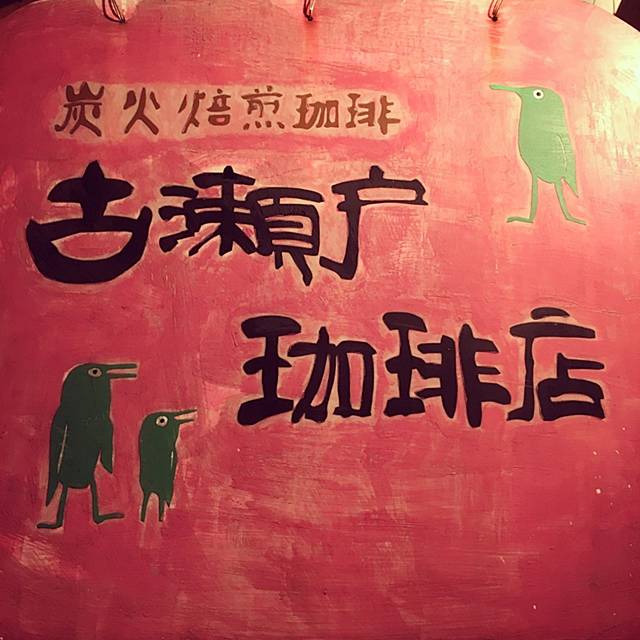 炭火焙煎珈琲
古瀬戸
珈琲店